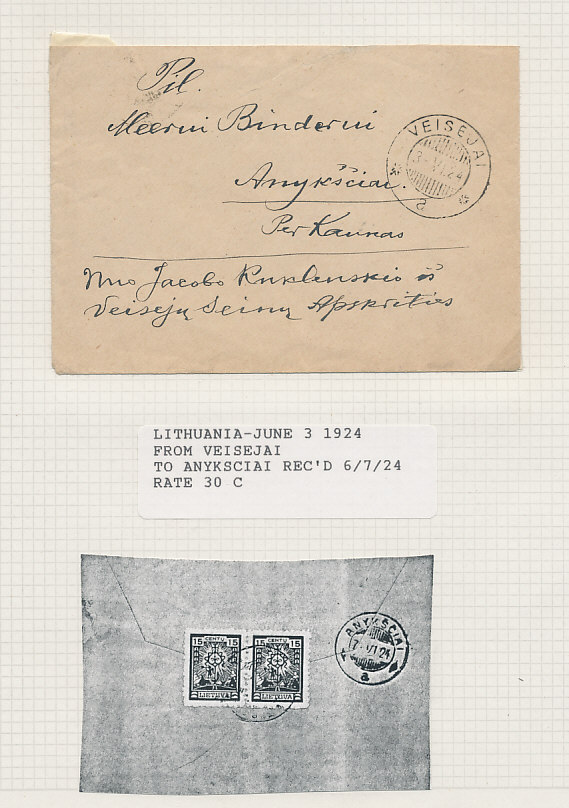 Pil.
Meerui Binderui
Anykščiai.
Per Kaunas
Nuo Jacobo Ruklenskio iš
Veisejų Seinų Apskrities
VEISEJAI
3-VI.24
a
LITHUANIA-JUNE 3 1924
FROM VEISEJAI
TO ANYKSCIAI REC'D 6/7/24
RATE 30 C
15 CENTŲ 15
LIETUVA
15 CENTŲ 15
LIETUVA
ANYKŠČIAI
7-VI 24
a